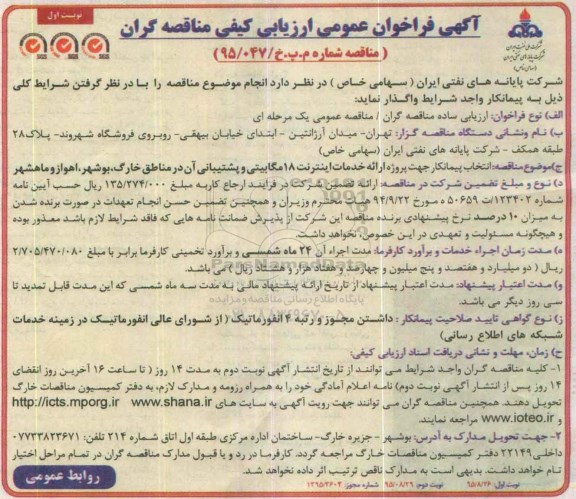 نوبت اول
آگهی فراخوان عمومی ارزیابی کیفی مناقصه گران
( مناقصه شماره م.پ.خ/۹۵/۰۴۷)
شرکت پایانه های نفتی ایران ( سهامی خاص ) در نظر دارد انجام موضوع مناقصه را با در نظر گرفتن شرایط کلی
ذیل به پیمانکار واجد شرایط واگذار نماید:
الف) نوع فراخوان: ارزیابی ساده مناقصه گران / مناقصه عمومی یک مرحله ای
ب) نام ونشانی دستگاه مناقصه گزار: تهران- میدان آرژانتین - ابتدای خیابان بیهقی- روبروی فروشگاه شهروند- پلاک۲۸
طبقه همکف - شرکت پایانه های نفتی ایران (سهامی خاص)
ج)موضوع مناقصه:انتخاب پیمانکار جهت پروژه ارائه خدمات اینترنت ۱۸مگابیتی و پشتیبانی آن در مناطق خارگ،بوشهر، اهواز و ماهشهر
د) نوع و مبلغ تضمین شرکت در مناقصه: ارائه تضمین شرکت در فرآیند ارجاع کاربه مبلغ ۱۳۵/۲۷۴/۰۰۰ ریال حسب آیین نامه
شماره ۱۲۳۴۰۲/ت ۵۰۶۵۹ ه مورخ ۹۴/۹/۲۲ محترم وزیران و همچنین تضمین حسن انجام تعهدات در صورت برنده شدن
به میزان ۱۰ درصد نرخ پیشنهادی برنده مناقصه این شرکت از پذیرش ضمانت نامه هایی که فاقد شرایط لازم باشد معذور بوده
و هیچگونه مسئولیت و تعهدی در این خصوص، نخواهد داشت.
ه) مدت زمان اجراء خدمات و برآورد کارفرما: مدت اجراء آن ۲۴ ماه شمسی و برآورد تخمینی کارفرما برابر با مبلغ ۲/۷۰۵/۴۷۰/۰۸۰
ریال ( دو میلیارد و هفتصد و پنج میلیون و چهارصد و هفتاد هزار و هشتاد ریال ) می باشد.
و) مدت اعتبار پیشنهاد: مدت اعتبار پیشنهاد از تاریخ ارائه پیشنهاد مالی به مدت سه ماه شمسی که این مدت قابل تمدید تا
سی روز دیگر می باشد.
ز) نوع گواهی تایید صلاحیت پیمانکار : داشتن مجوز و رتبه ۴ انفورماتیک ( از شورای عالی انفورماتیک در زمینه خدمات
شبکه های اطلاع رسانی)
ح) زمان، مهلت و نشانی دریافت اسناد ارزیابی کیفی:
۱- کلیه مناقصه گران واجد شرایط می توانند از تاریخ انتشار آگهی نوبت دوم به مدت ۱۴ روز ( تا ساعت ۱۶ آخرین روز انقضای
۱۴ روز پس از انتشار آگهی نوبت دوم) نامه اعلام آمادگی خود را به همراه رزومه و مدارک لازم، به دفتر کمیسیون مناقصات خارگ
تحویل دهند. همچنین مناقصه گران می توانند جهت رویت آگهی به سایت های www.shana.ir و http://icts.mporg.ir
و www.ioteo.ir مراجعه نمایند.
۲- جهت تحویل مدارک به آدرس: بوشهر - جزیره خارگ- ساختمان اداره مرکزی طبقه اول اتاق شماره ۲۱۴ تلفن: ۰۷۷۳۳۸۲۳۶۷۱
داخلی ۲۲۱۴۹ دفتر کمیسیون مناقصات خارگ مراجعه گردد. کارفرما در رد و یا قبول مدارک مناقصه گران در تمام مراحل اختیار
تام خواهد داشت. بدیهی است به مدارک ناقص ترتیب اثر داده نخواهد شد.
نوبت اول: ۹۵/۸/۲۶ نوبت دوم: ۹۵/۰۸/۲۹ شماره مجوز: ۱۳۹۵/۳۶۰۴
روابط عمومی